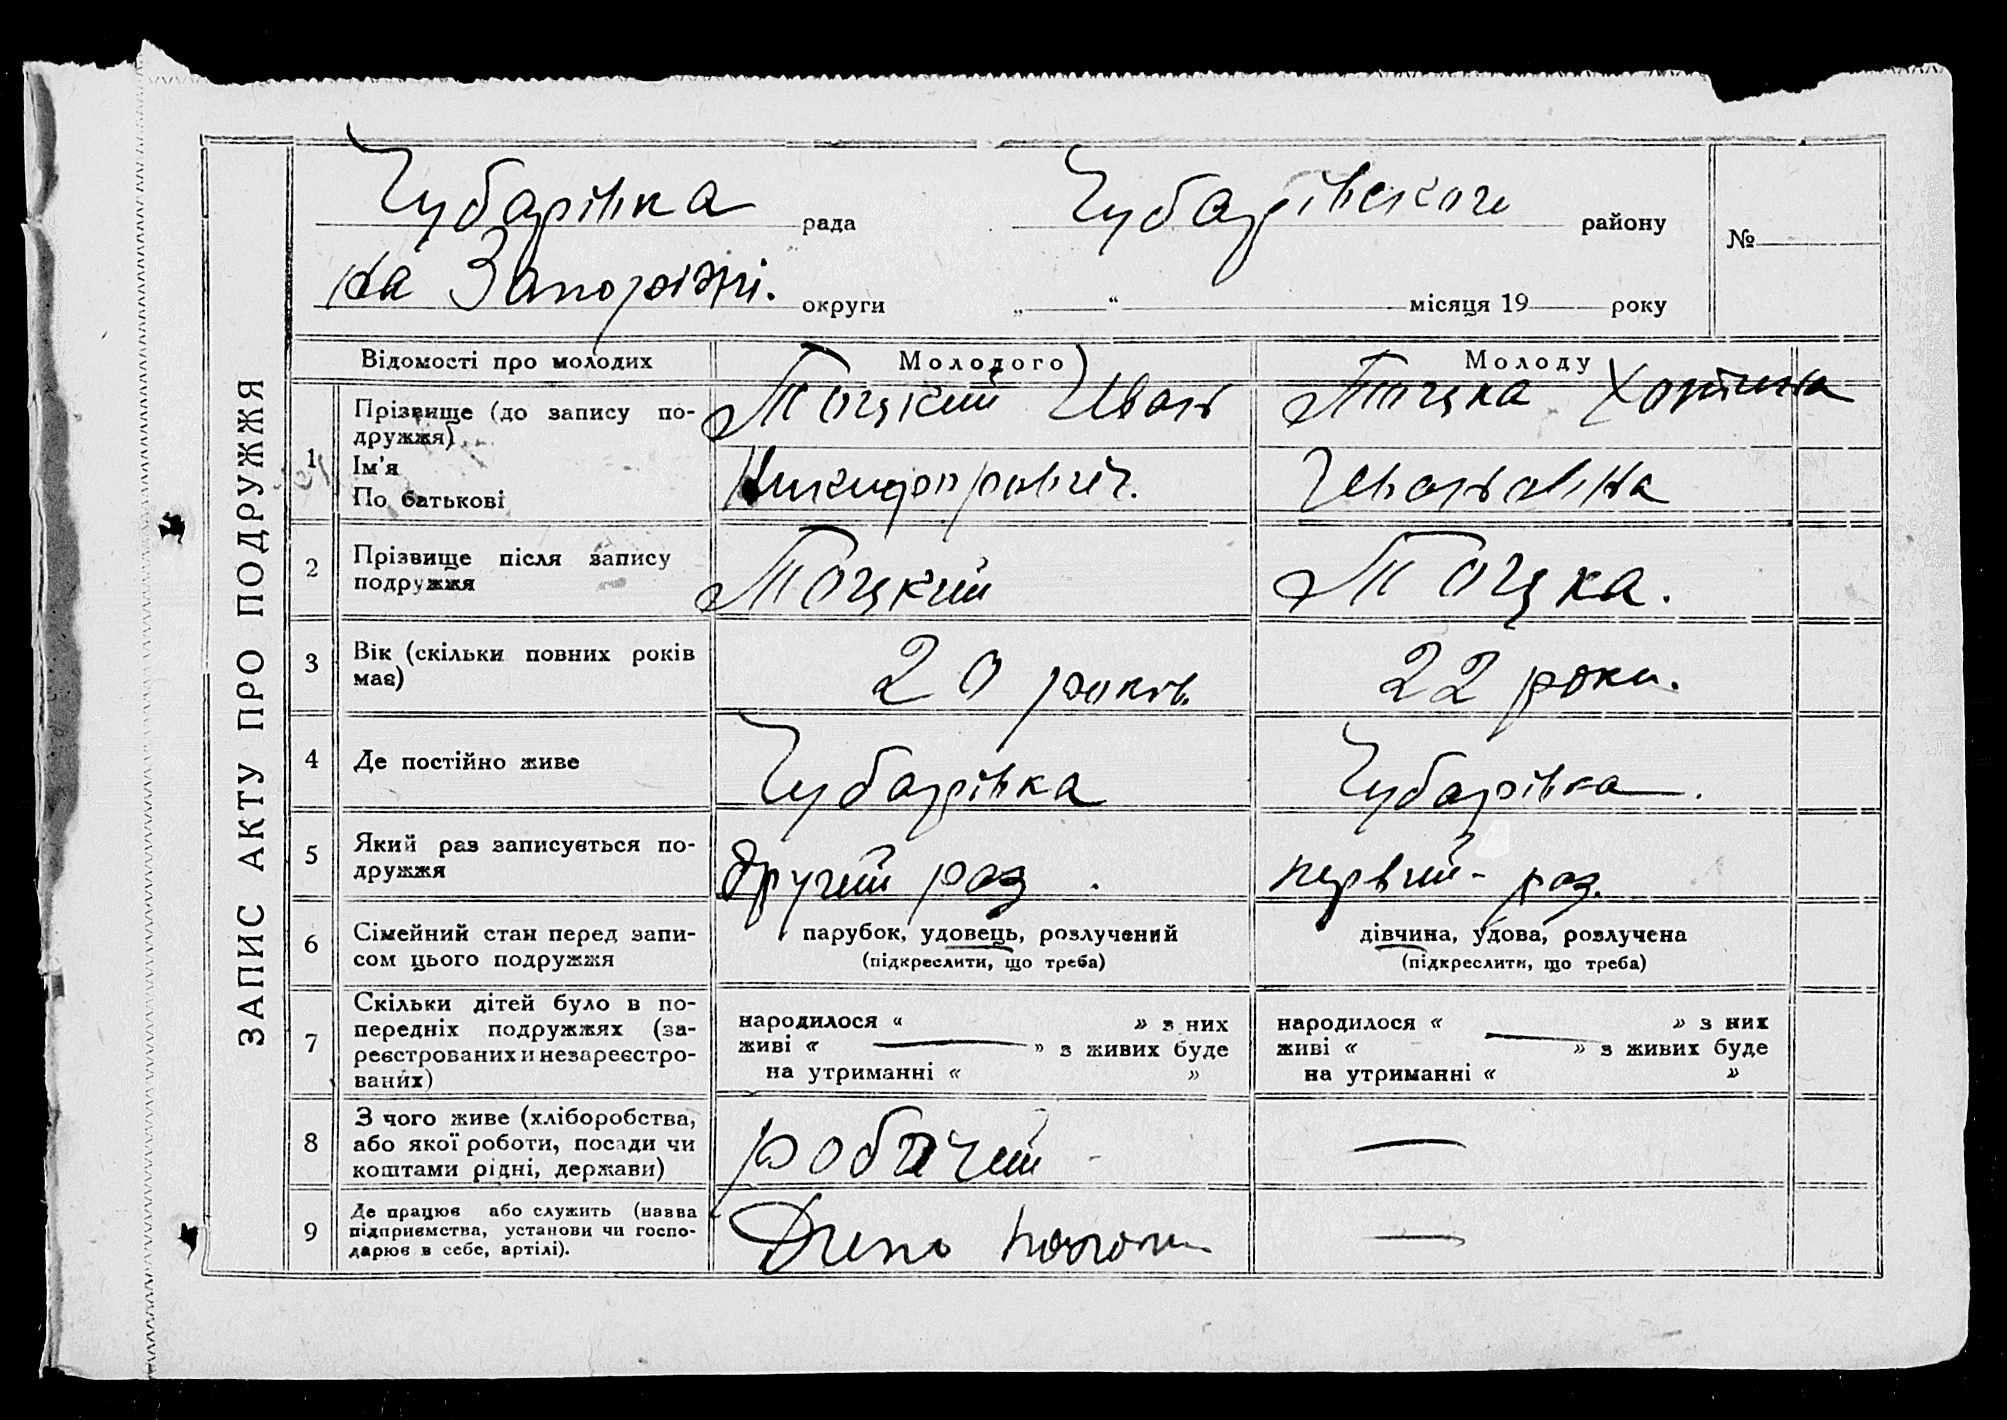 ЗАПИС АКТУ ПРО ПОДРУЖЖЯ
Чубарівка рада Чубарівского району №
на Запоріжжі. округи „ “ місяця 19 року
Відомості про молодих Молодого Молоду
1 Прізвище (до запису по-
дружжя)
Ім'я
По батькові
Тоцкий Иван
Никифорович.
Тоцка
Ивановна
2 Прізвище після запису
подружжя
Тоцкий
Тоцка.
3 Вік (скільки повних років
має)
20 років.
22 роки.
4 Де постійно живе
Чубарівка
Чубарівка.
5 Який раз записується по-
дружжя
другий раз.
первий - раз.
6 Сімейний стан перед запи-
сом цього подружжя
парубок, удовець, розлучений
(підкреслити, що треба)
дівчина, удова, розлучена
(підкреслити, що треба)
7 Скільки дітей було в по-
передніх подружжях (за-
реєстрованих и незареєстро-
ваних)
народилося « » з них
живі « — » з живих буде
на утриманні « »
народилося « — » з них
живі « » з живих буде
на утриманні « »
8 З чого живе (хліборобства,
або якої роботи, посади чи
коштами рідні, держави)
робочий
—
9 Де працює або служить (назва
підприємства, установи чи госпо-
дарює в себе, артілі).
Депо
—